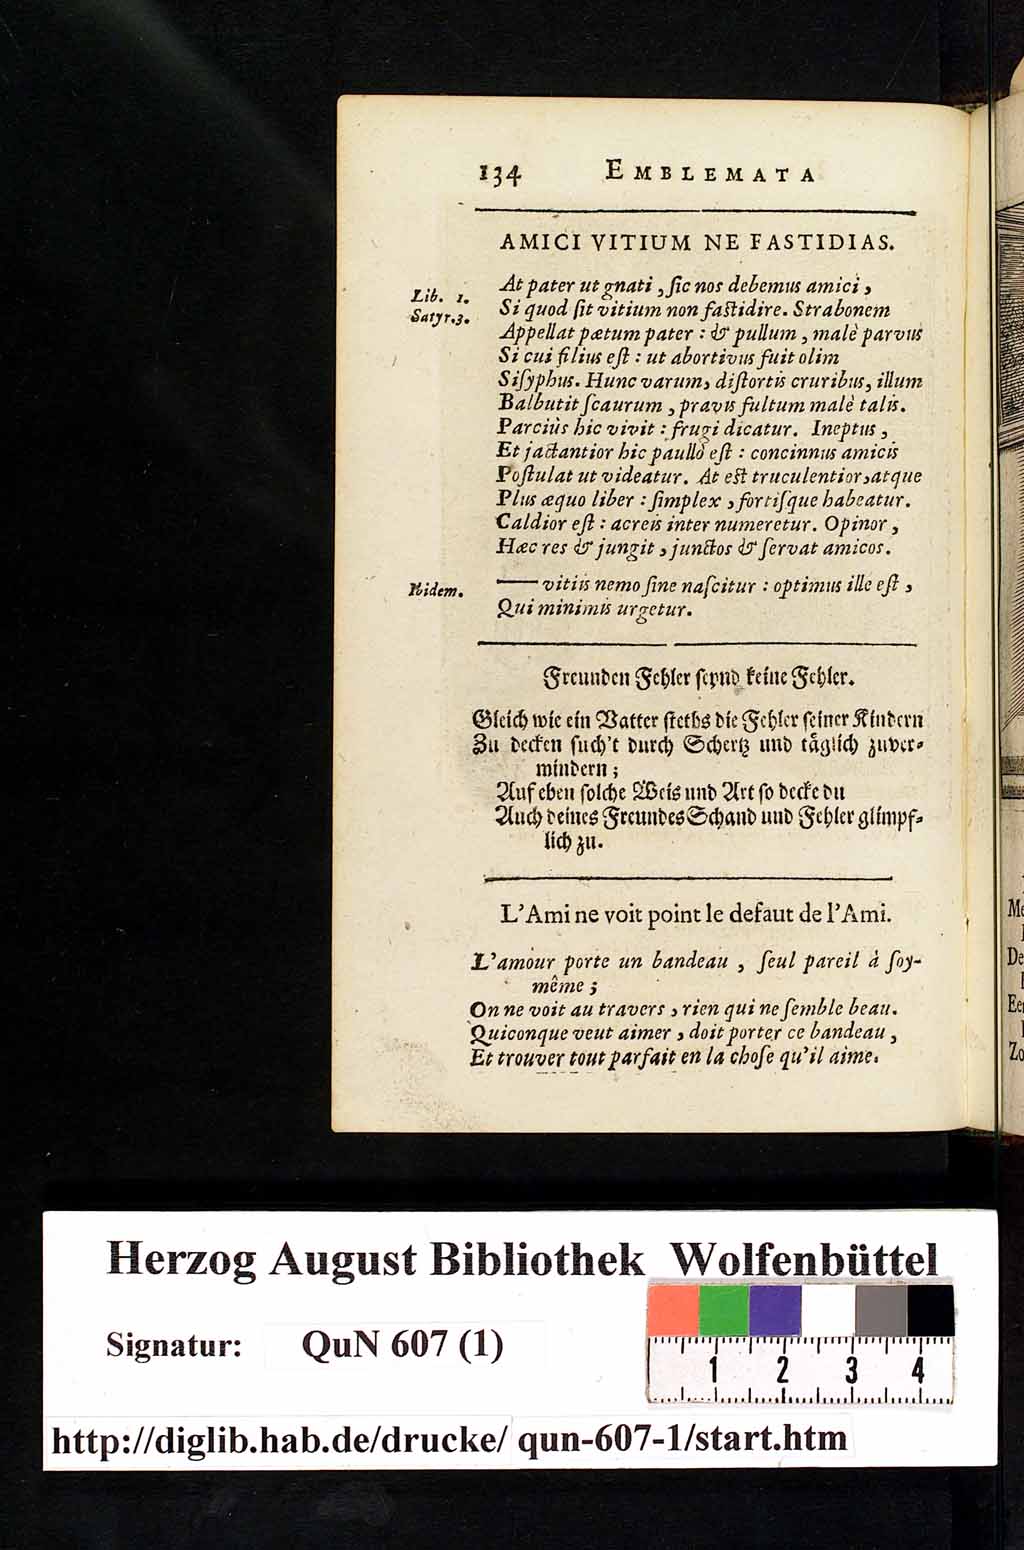 134 EMBLEMATA
AMICI VITIUM NE FASTIDIAS.
Lib. 1.
Satyr. 3.
At pater ut gnati, ſic nos debemus amici,
Si quod ſit vitium non faſtidire. Strabonem
Appellat pætum pater: & pullum, malè parvus
Si cui filius eſt: ut abortivus fuit olim
Siſyphus. Hunc varum, diſtortis cruribus, illum
Balbutit ſcaurum, pravis fultum malè talis.
Parciùs hic vivit: frugi dicatur. Ineptus,
Et jactantior hic paullò eſt: concinnus amicis
Poſtulat ut videatur. At eſt truculentior, atque
Plus æquo liber: ſimplex, fortiſque habeatur.
Caldior eſt: acreis inter numeretur. Opinor,
Hæc res & jungit, junctos & ſervat amicos.
Ibidem.
—— vitiis nemo ſine naſcitur: optimus ille eſt,
Qui minimis urgetur.
Freunden Fehler ſeynd keine Fehler.
Gleich wie ein Vatter ſteths die Fehler ſeiner Kindern
Zu decken ſuch't durch Schertz und täglich zuver-
mindern;
Auf eben ſolche Weis und Art ſo decke du
Auch deines Freundes Schand und Fehler glimpf-
lich zu.
L'Ami ne voit point le defaut de l'Ami.
L'amour porte un bandeau, ſeul pareil à ſoy-
même;
On ne voit au travers, rien qui ne ſemble beau.
Quiconque veut aimer, doit porter ce bandeau,
Et trouver tout parfait en la choſe qu'il aime.
Me
De
Ee
Zo
Herzog August Bibliothek Wolfenbüttel
Signatur: QuN 607 (1)
1 2 3 4
http://diglib.hab.de/drucke/ qun-607-1/start.htm